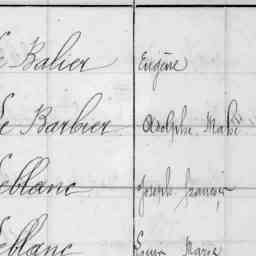 Le Balier Eugène
Le Barbier Adolphe Marie
Leblanc Joseph François
Leblanc Louis Marie